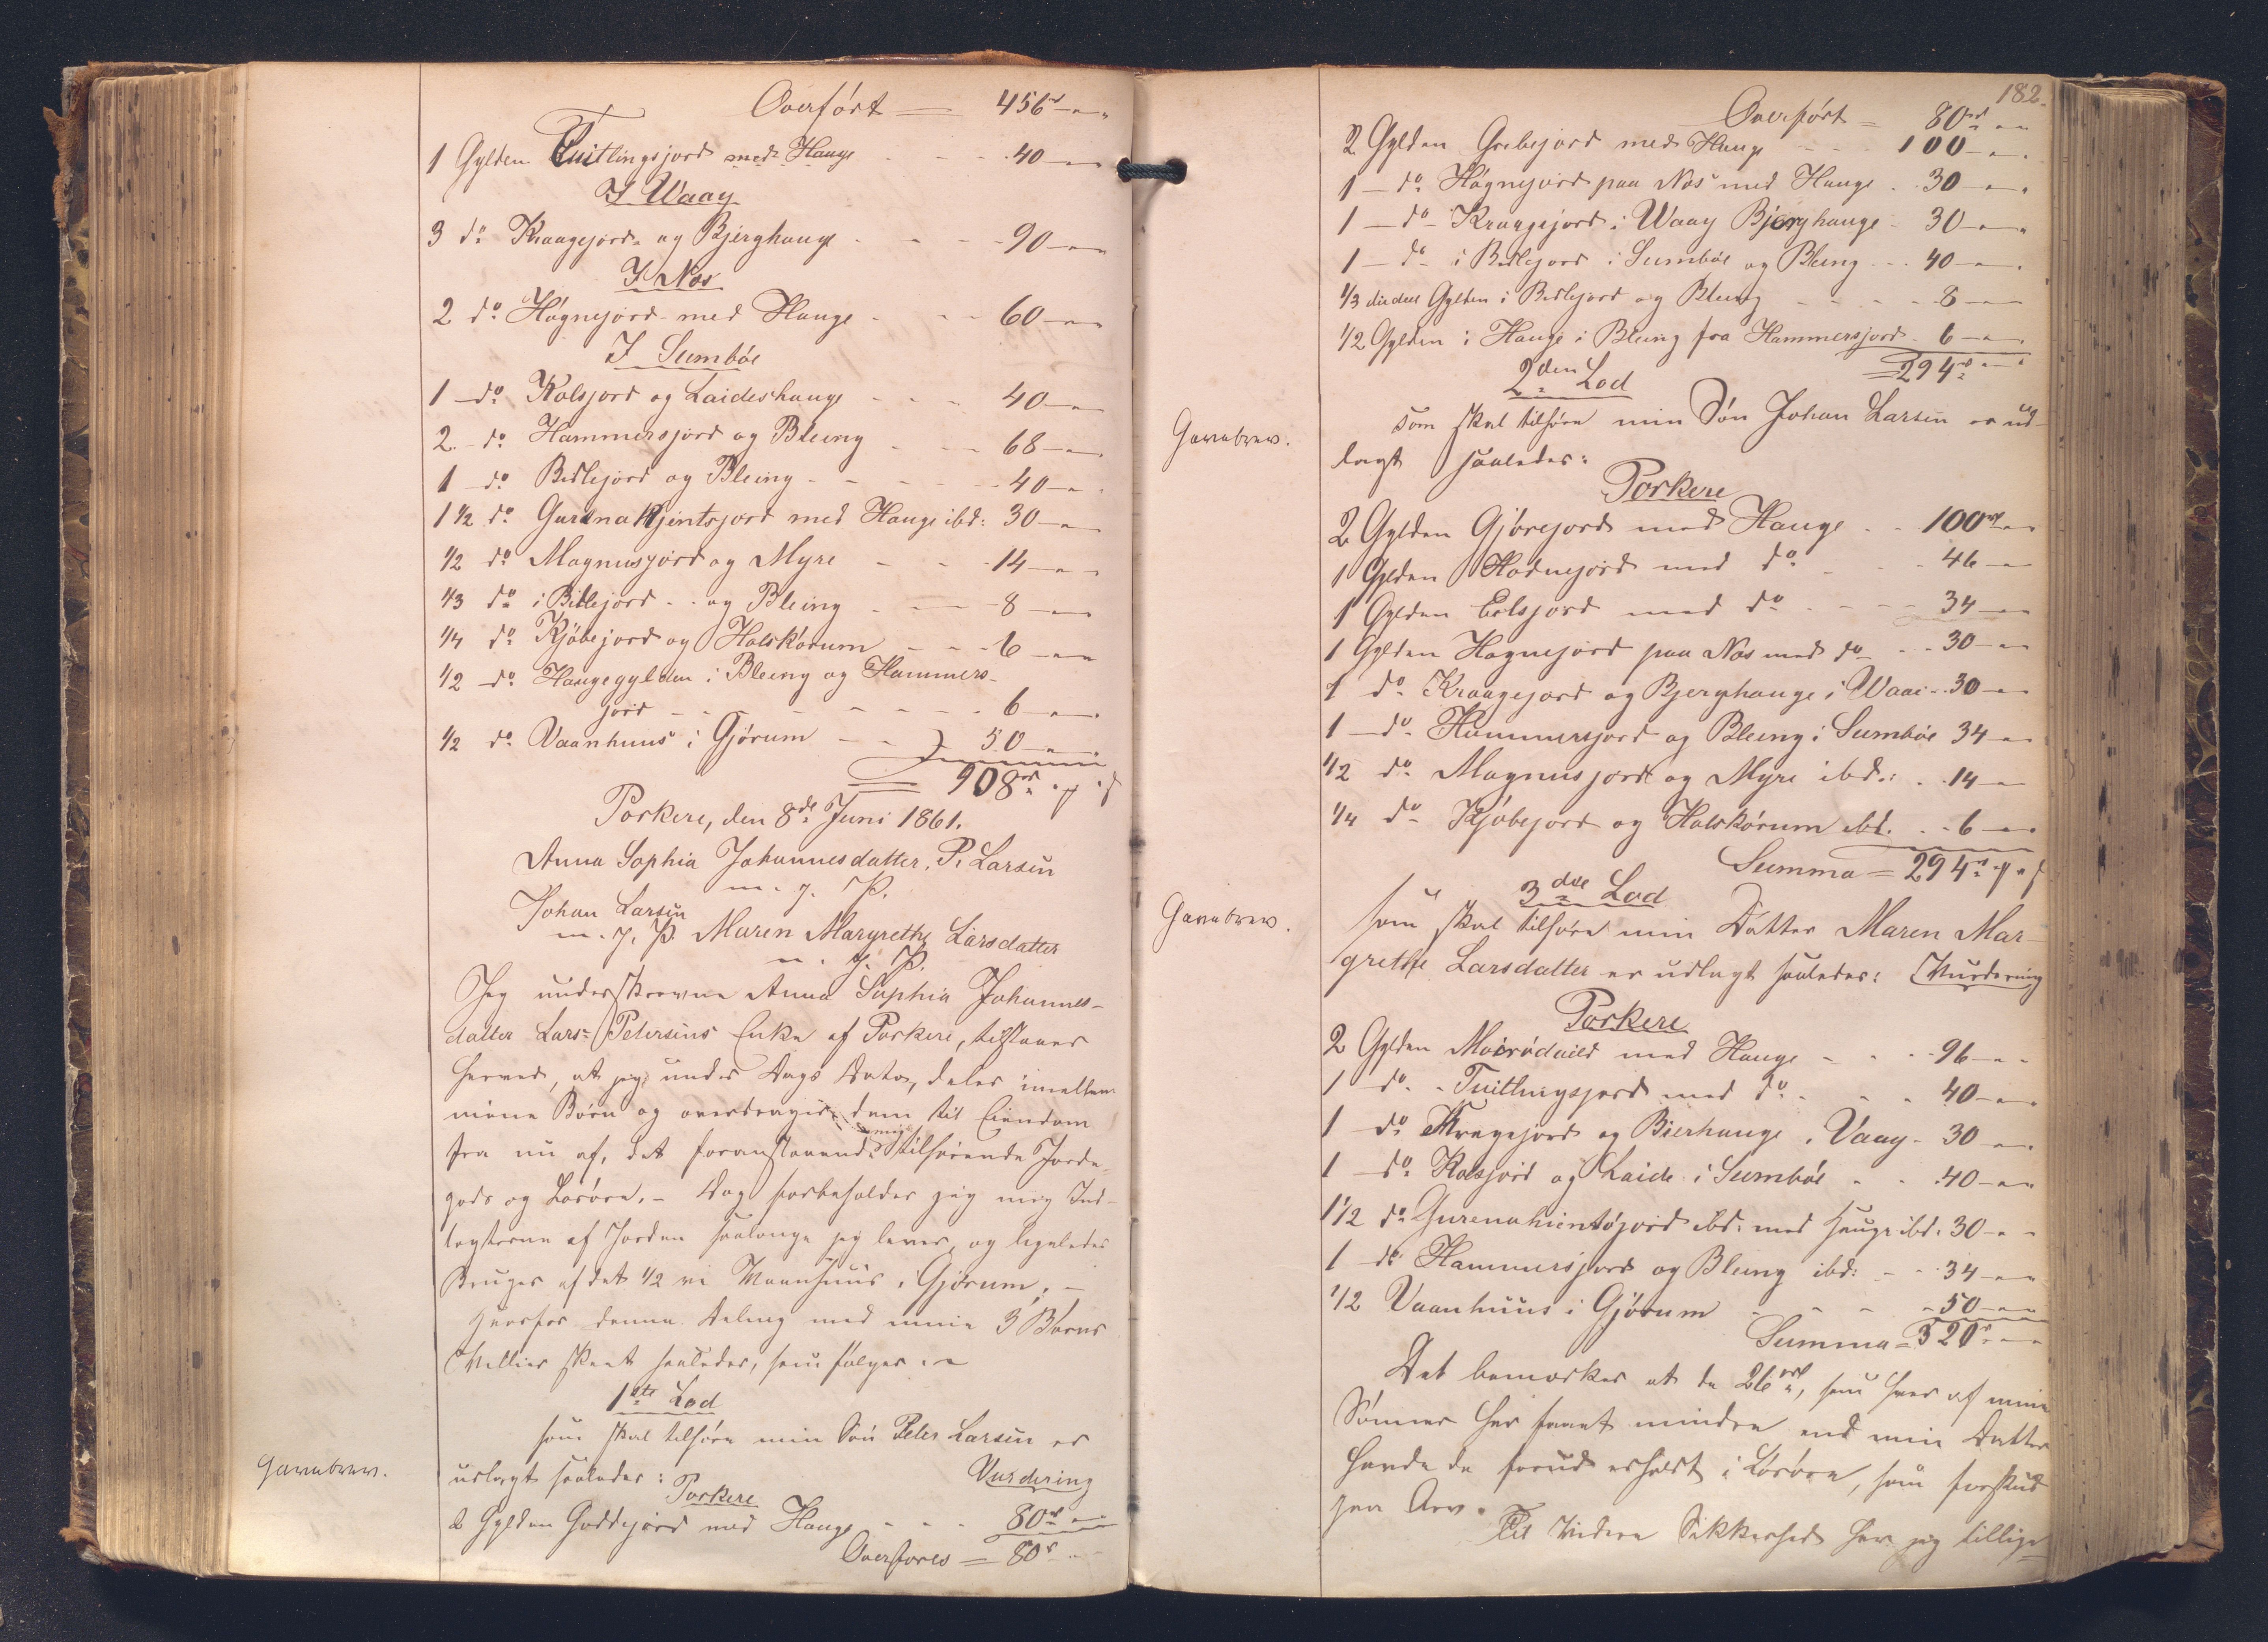 Overført = 456rd „ „
1 Gylden Tuitlingsjord med Hauge - - - 40 „ „
I Waag
3 do Kraagejord og Bjerghauge - - - 90 „ „
I Næs
2 do Høgnejord med Hauge - - - 60 „ „
I Sumbøe
1 do Kalsjord og Laideshauge - - - 40 „ „
2 do Hammersjord og Bleing - - 68 „ „
1 do Bidlejord og Bleing - - - 40 „ „
1 1/2 do Gurenahjentsjord med Hauge ibd: 30 „ „
1/2 do Magnusjord og Myre - - - 14 „ „
1/3 do i Bidlejord - og Bleing - - - 8 „ „
1/4 do Kjøbejord og Halskórum - - - 6 „ „
1/2 do Haugegylden i Bleing og Hammers-
jord - - - - - - 6 „ „
1/2 do Vaanhuus i Gjørum - - 50 „ „
= 908rd „ „
Porkere, den 8de Juni 1861.
Anna Sophia Johannesdatter. P. Larsen
m. f. P.
Johan Larsen
m. f. P. Maren Margrethe Larsdatter
m. f. P.
Jeg underskrevne Anna Sophia Johannes-
datter Lars Petersens Enke af Porkere, tilstaaer
herved, at jeg under Dags Dato, deler imellem
mine Børn og overdrager dem til Eiendom
fra nu af, det foranstaaende mig tilhørende Jorde-
gods og Løsøre. - Dog forbeholder jeg mig Ind-
tægterne af Jorden saalænge jeg lever, og ligeledes
Bruget af det 1/2 Vaanhuus i Gjørum; -
hvorfor denne Deling med mine 3 Børns
Villie skeet saaledes, som følger: -
1ste Lod
som skal tilhøre min Søn Peter Larsen er
Gavebrev.
udlagt saaledes: Vurdering
Porkere
2 Gylden Goddejord med Hauge - - - 80rd „ „
Overføres = 80r „
182.
Overført = 80rd „ „
2 Gylden Grebejord med Hauge - - - 100 „ „
1 - do Høgnejord paa Næs med Hauge - 30 „ „
1 - do Kraagejord i Waag Bjerghauge - 30 „ „
1 - do i Bidlejord i Sumbøe og Bleing - - 40 „ „
1/3 die deel Gylden i Bidlejord og Bleing - - - 8 „ „
1/2 Gylden i Hauge i Bleing fra Hammersjord - 6 „ „
= 294rd „ „
2den Lod
Gavebrev.
som skal tilhøre min Søn Johan Larsen er ud-
lagt saaledes:
Porkere
2 Gylden Gjørejord med Hauge - - 100rd „ „
1 Gylden Hadnejord med do - - - 46 „
1 Gylden Eelsjord med do - - - 34 „ „
1 Gylden Høgnejord paa Næs med do - - 30 „ „
1 do Kraagejord og Bjerghauge i Waai - 30 „ „
1 - do Hammersjord og Bleing i Sumbøe 34 „ „
1/2 do Magnusjord og Myre ibd.: - 14 „
1/4 do Kjøbejord og Halskórum ibd. - 6 „ „
Summa = 294rd „ „
3die Lod
Gavebrev.
som skal tilhøre min Datter Maren Mar-
grethe Larsdatter er udlagt saaledes: Vurdering
Porkere
2 Gylden med Hauge - - - 96 „ „
1 do - Tuitlingsjord med do - - - 40 „ „
1 do Kragejord og Bierhauge i Vaag - 30 „ „
1 - do Kalsjord og Laide i Sumbøe - - 40 „ „
1 1/2 do Gurenahientsjord ibd. med Hauge ibd. 30 „ „
1 do Hammersjord og Bleing ibd: - - 34 „ „
1/2 Vaanhuus i Gjørum - - - 50 „ „
Summa = 320rd „ „
Det bemærkes at de 26rd, som hver af mine
Sønner har faaet mindre end min Datter
havde de forud erholdt i Løsøre, som forskud
paa Arv.
Til videre Sikkerhed har jeg tillige